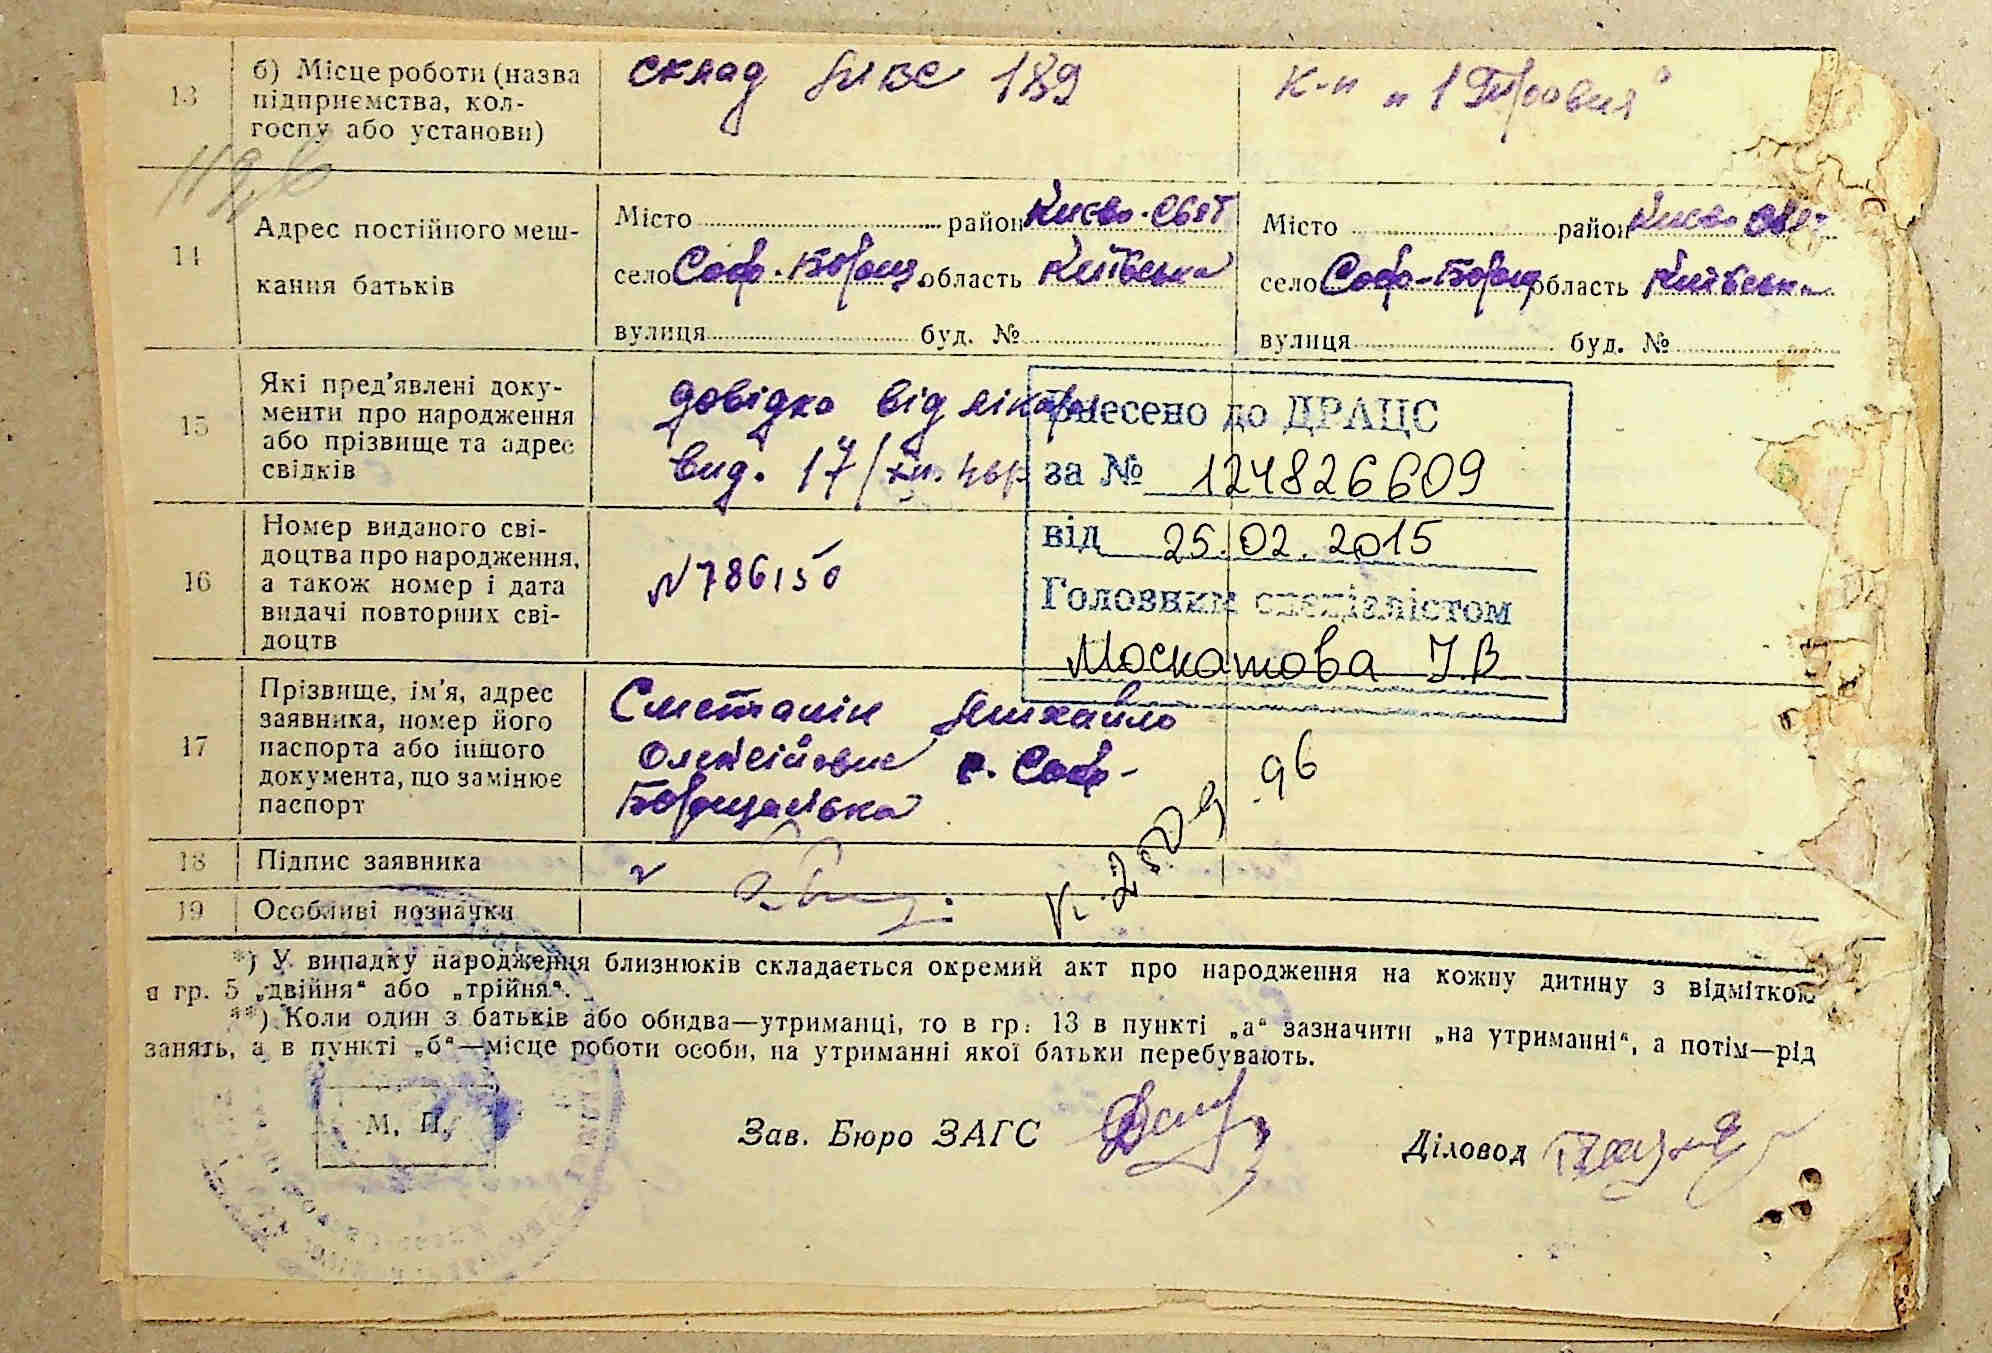 13
б) Місце роботи (назва
підприємства, кол-
госпу або установи)
склад 189
к-п „1 Травня"
14
Адрес постійного меш-
кання батьків
Місто район Києво-Свят
село Соф-Борщ. область Київська
вулиця буд. №
Місто район Києво Свят
село Соф-Борщ область Київська
вулиця буд. №
15
Які пред'явлені доку-
менти про народження
або прізвище та адрес
свідків
довідка від лікаря
вид. 17/
16
Номер виданого сві-
доцтва про народження,
а також номер і дата
видачі повторних сві-
доцтв
N786150
Внесено до ДРАЦС
за № 124826609
від 25.02.2015
Головним спеціалістом
Москатова І В
17
Прізвище, ім'я, адрес
заявника, номер його
паспорта або іншого
документа, що замінює
паспорт
Сметанін Михайло
Олексійович с. Соф-
Борщагівка
18
Підпис заявника
19
Особливі позначки
*) У випадку народження близнюків складається окремий акт про народження на кожну дитину з відміткою
в гр. 5 „двійня" або „трійня".
**) Коли один з батьків або обидва—утриманці, то в гр. 13 в пункті „а" зазначити „на утриманні", а потім—рід
занять, а в пункті „б"—місце роботи особи, на утриманні якої батьки перебувають.
М. П.
Зав. Бюро ЗАГС
Діловод